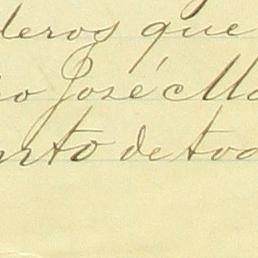 deros que
io José Ma
arto de tod